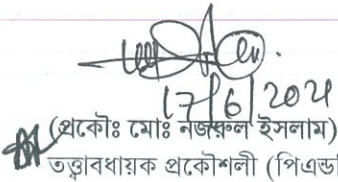 17/6/2024
(প্রকৌঃ মোঃ নজরুল ইসলাম)
তত্ত্বাবধায়ক প্রকৌশলী (পিএন্ড